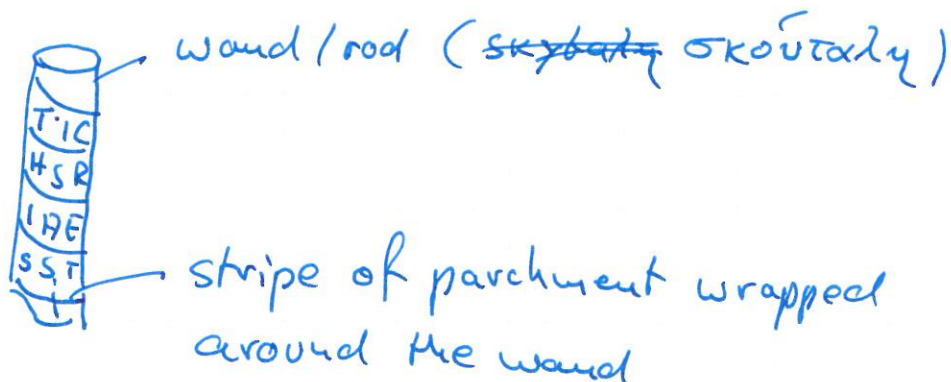 wand/rod ( σκούταλη)
T·IC
HSR
IAE
SST
stripe of parchment wrapped
around the wand